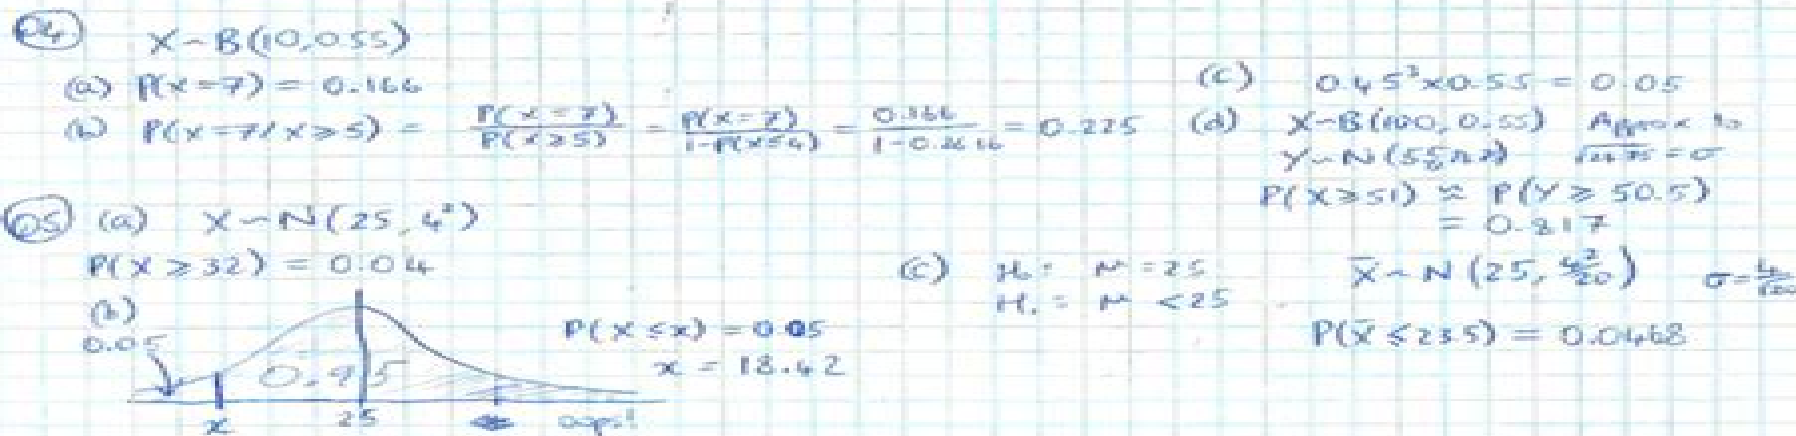 Q4 X~B(10,0.55)
(a) P(X=7) = 0.166
(b) P(X=7/X≥5) = P(X=7)/P(X≥5) = P(X=7)/1-P(X≤4) = 0.166/1-0.2616 = 0.225
(c) 0.45³×0.55 = 0.05
(d) X~B(100, 0.55) Approx to
√24.75 = σ
P(X≥51) ≈ P(Y≥50.5)
= 0.817
Q5 (a) X~N(25, 4²)
P(X≥32) = 0.04
(b)
0.05
0.95
x 25 oops!
P(X≤x) = 0.05
x = 18.42
(c) H₀: μ = 25
H₁: μ < 25
X̄~N(25, 4²/20) σ=4/√20
P(X̄≤23.5) = 0.0468